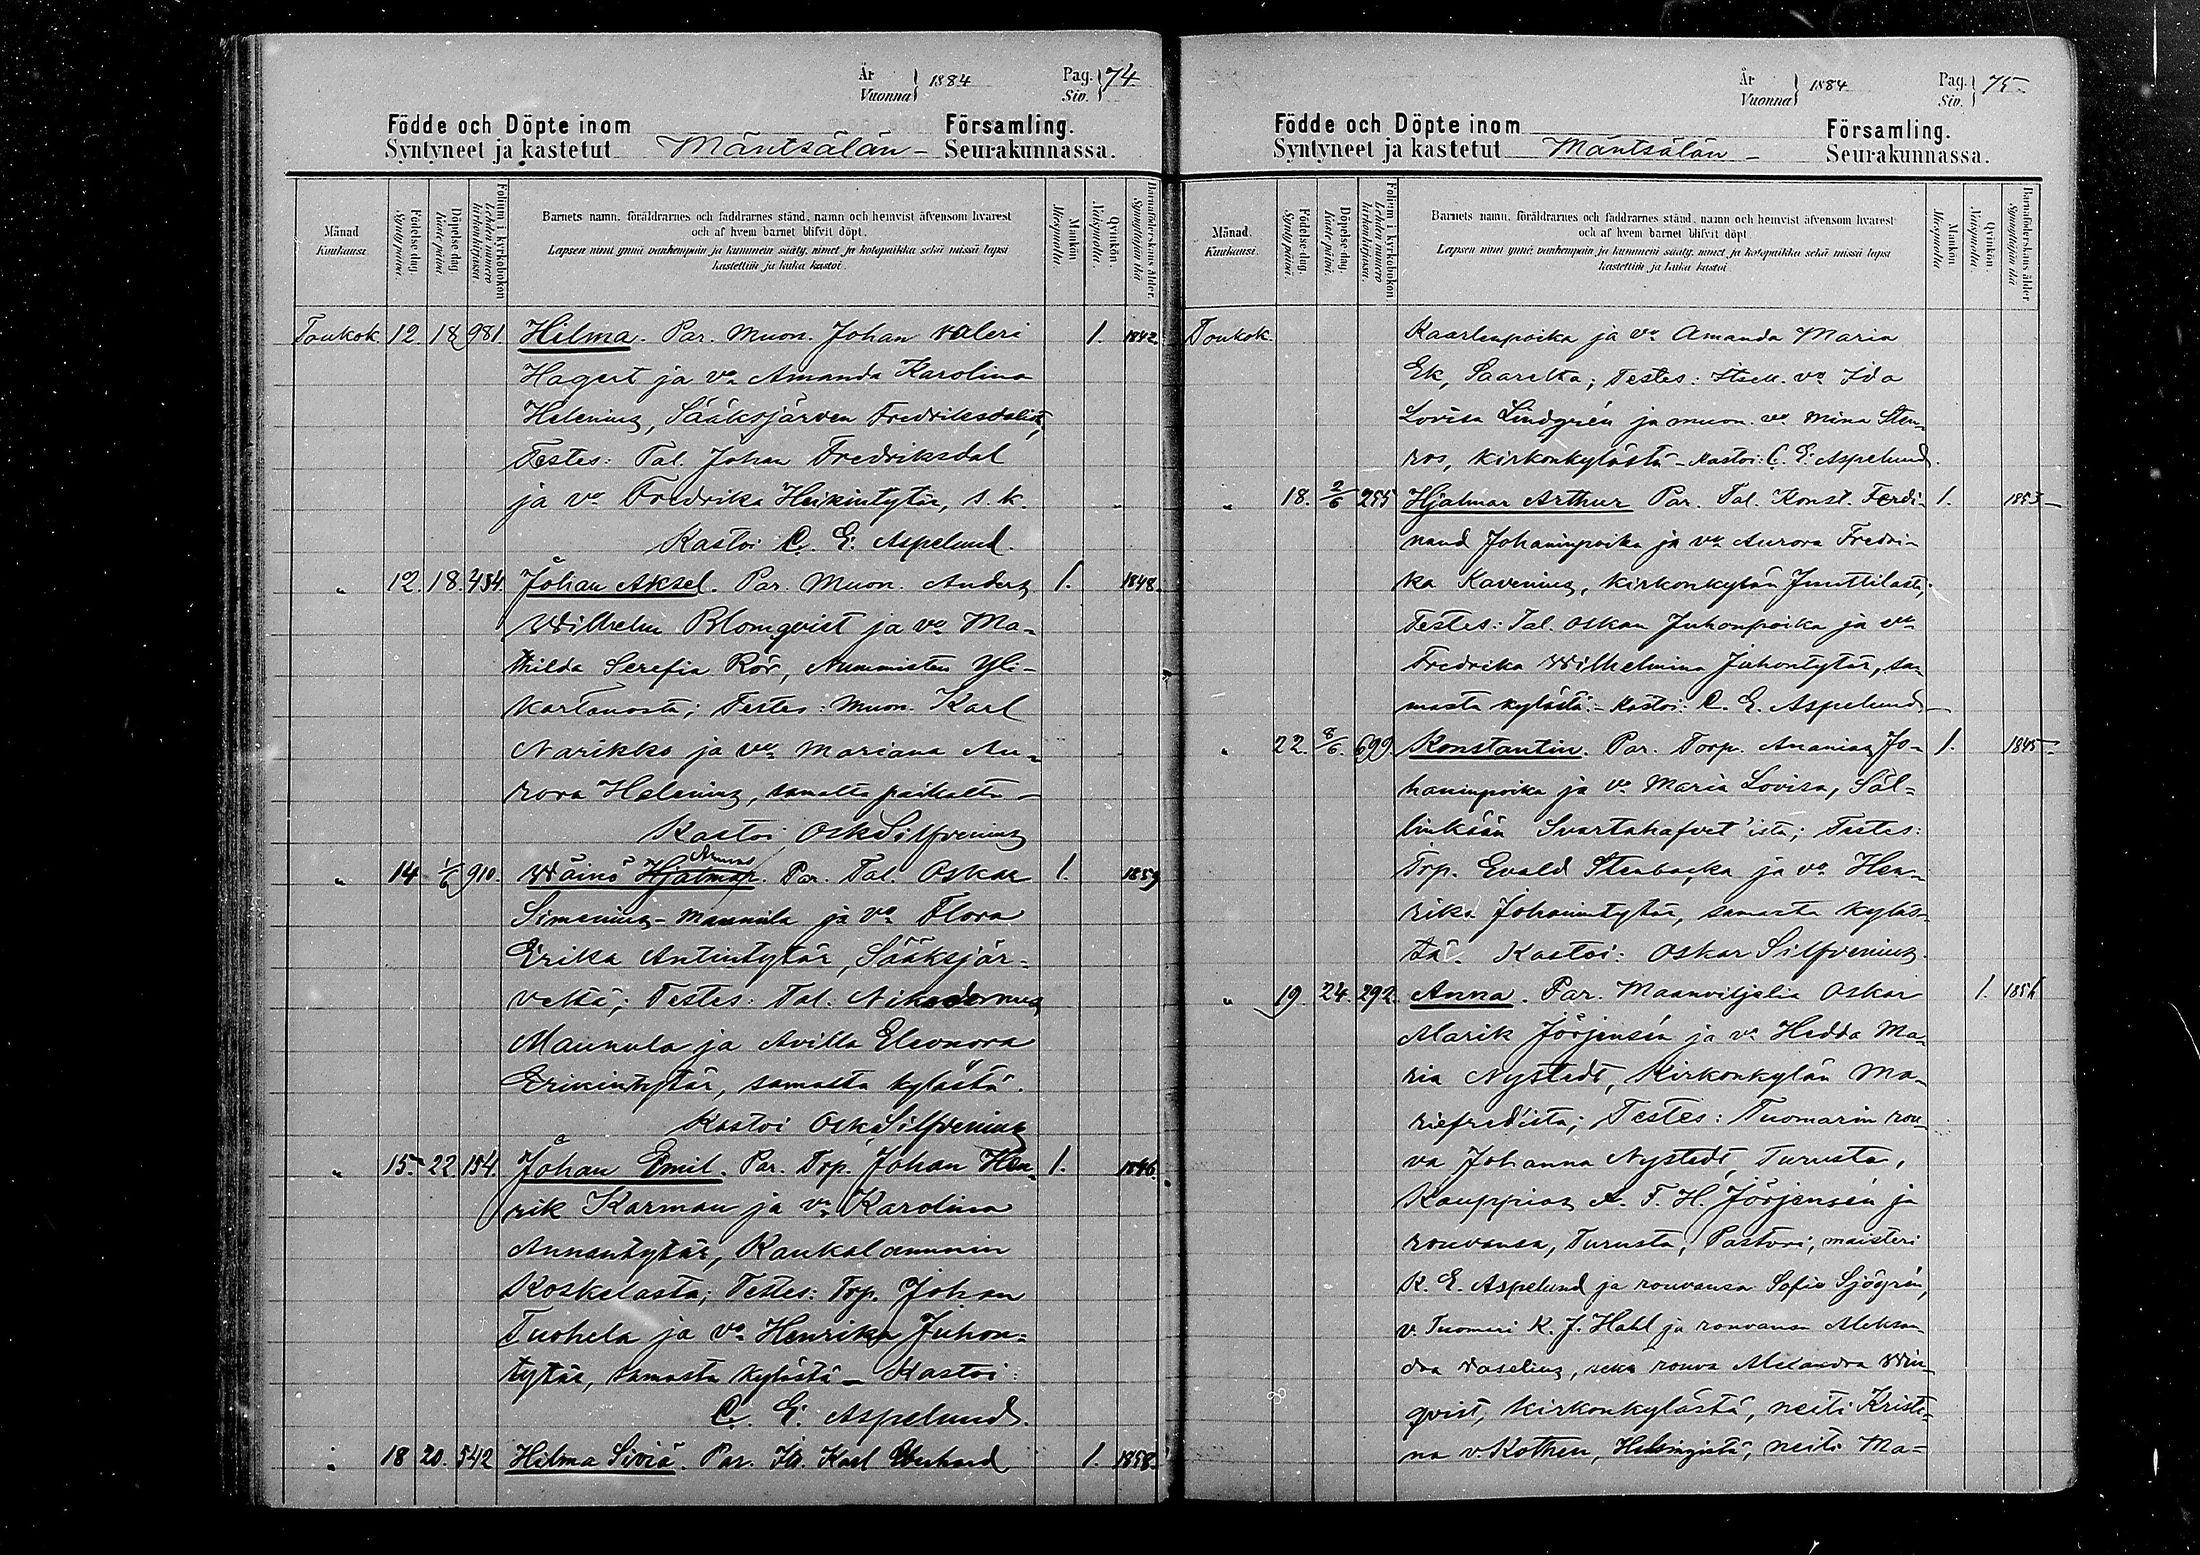 År
Vuonna } 1884
Pag.
Siv. } 74.
Födde och Döpte inom Församling.
Syntyneet ja kastetut Mäntsälän - Seurakunnassa.
Månad.
Kuukausi.
Födelsedag.
Syntypäivä.
Döpelsedag.
Kastepäivä.
Folium i kyrkoboken
Lehden numero kirkonkirjassa.
Barnets namn, föräldrarnes och faddrarnes stånd, namn och hemvist äfvensom hvarest
och af hvem barnet blifvit döpt.
Lapsen nimi ynnä vanhempain ja kummein sääty, nimet ja kotopaikka sekä missä lapsi
kastettiin ja kuka kastoi.
Mankön
Miespuolia.
Qvinkön.
Naispuolia.
Barnaföderskans ålder.
Synnyttäjän ikä
Toukok. 12 18 981. Hilma. Par. Muon. Johan Valeri 1. 1842.
Hagert ja vo. Amanda Karolina
Helenius, Sääksjärven Fredriksdalist,
Testes: Tal. Johan Fredriksdal
ja vo Fredrika Heikintytär, s.k.
Kastoi C. E. Aspelund.
" 12. 18. 484. Johan Aksel. Par. Muon. Anders 1. 1848.
Wilhelm Blomqvist ja vo. Ma-
thilda Serefia Rör, Nummisten Yli-
kartanosta; Testes: Muon. Karl
Narikko ja vo. Mariana Au-
rora Helenius, samalta paikalta -
Kastoi Osk Silfvenius
" 14 1/6 910. Wäinö Hjalmar. Par. Tal. Oskar 1. 1859
Simenius-Maunula ja vo Flora
Erika Antintytär, Sääksjär-
veltä; Testes: Tal. Nikodemus
Maunula ja Avilla Eleonora
Erikintytär, samasta kylästä.
Kastoi Osk. Silfvenius
" 15. 22. 154. Johan Emil. Par. Trp. Johan Hen- 1. 1846.
rik Karman ja vo. Karolina
Annantytär, Kaukalammin
Koskelasta; Testes: Trp. Johan
Tuohela ja vo. Henrika Juhon-
tytär, samasta kylästä - Kastoi:
C. E. Aspelund.
" 18 20. 542 Hilma Siviä. Par. Karl 1. 1858.
År
Vuonna } 1884
Pag.
Siv. } 75
Födde och Döpte inom Församling.
Syntyneet ja kastetut Mäntsälän - Seurakunnassa.
Månad.
Kuukausi.
Födelsedag.
Syntypäivä.
Döpelsedag.
Kastepäivä.
Folium i kyrkoboken.
Lehden numero kirkonkirjassa.
Barnets namn, föräldrarnes och faddrarnes stånd, namn och hemvist äfvensom hvarest
och af hvem barnet blifvit döpt.
Lapsen nimi ynnä vanhempain ja kummein sääty, nimet ja kotopaikka sekä missä lapsi
kastettiin ja kuka kastoi
Mankön
Miespuolia
Qvinkön.
Naispuolia.
Barnaföderskans ålder
Synnyttäjän ikä
Toukok. Kaarlenpoika ja vo Amanda Maria
Ek, Saarelta; Testes: Itsell. vo Ida
Lovisa Lindgrén ja muon. vo Mina Sten-
ros, kirkonkylästä - Kastoi: C. E. Aspelund.
" 18. 2/6 255 Hjalmar Arthur Par. Tal. Konst. Ferdi- 1. 1853
nand Johaninpoika ja vo Aurora Fredri-
ka Kavenius, kirkonkylän Junttilasta;
Testes: Tal. Oskar Juhonpoika ja vo
Fredrika Wilhelmina Juhontytär, sa-
masta kylästä. - Kastoi: C. E. Aspelund -
" 22. 8/6. 699. Konstantin. Par. Torp. Ananias Jo- 1. 1845
haninpoika ja vo Maria Lovisa, Säl-
linkään Svartahafvet'ista; Testes:
Trp. Evald Stenbacka ja vo Hen-
rika Johanintytär, samasta kyläs-
tä. Kastoi: Oskar Silfvenius.
" 19. 24. 292. Anna. Par. Maanviljeliä Oskar 1. 1856
Marik Jörjensén ja vo Hedda Ma-
ria Nystedt, Kirkonkylän Ma-
riefred'ista; Testes: Tuomarin rou-
va Johanna Nystedt, Turusta,
Kauppias A. F. H. Jörjensén ja
rouvansa, Turusta, Pastori, maisteri
K. E. Aspelund ja rouvansa Sofie Sjögrén,
v. Tuomari K. J. Hahl ja rouvansa Aleksan-
dra Vaselius, sekä rouva Alexandra Win-
qvist, kirkonkylästä, neiti Kristi-
na v. Kothen, Helsingistä, neiti Ma-